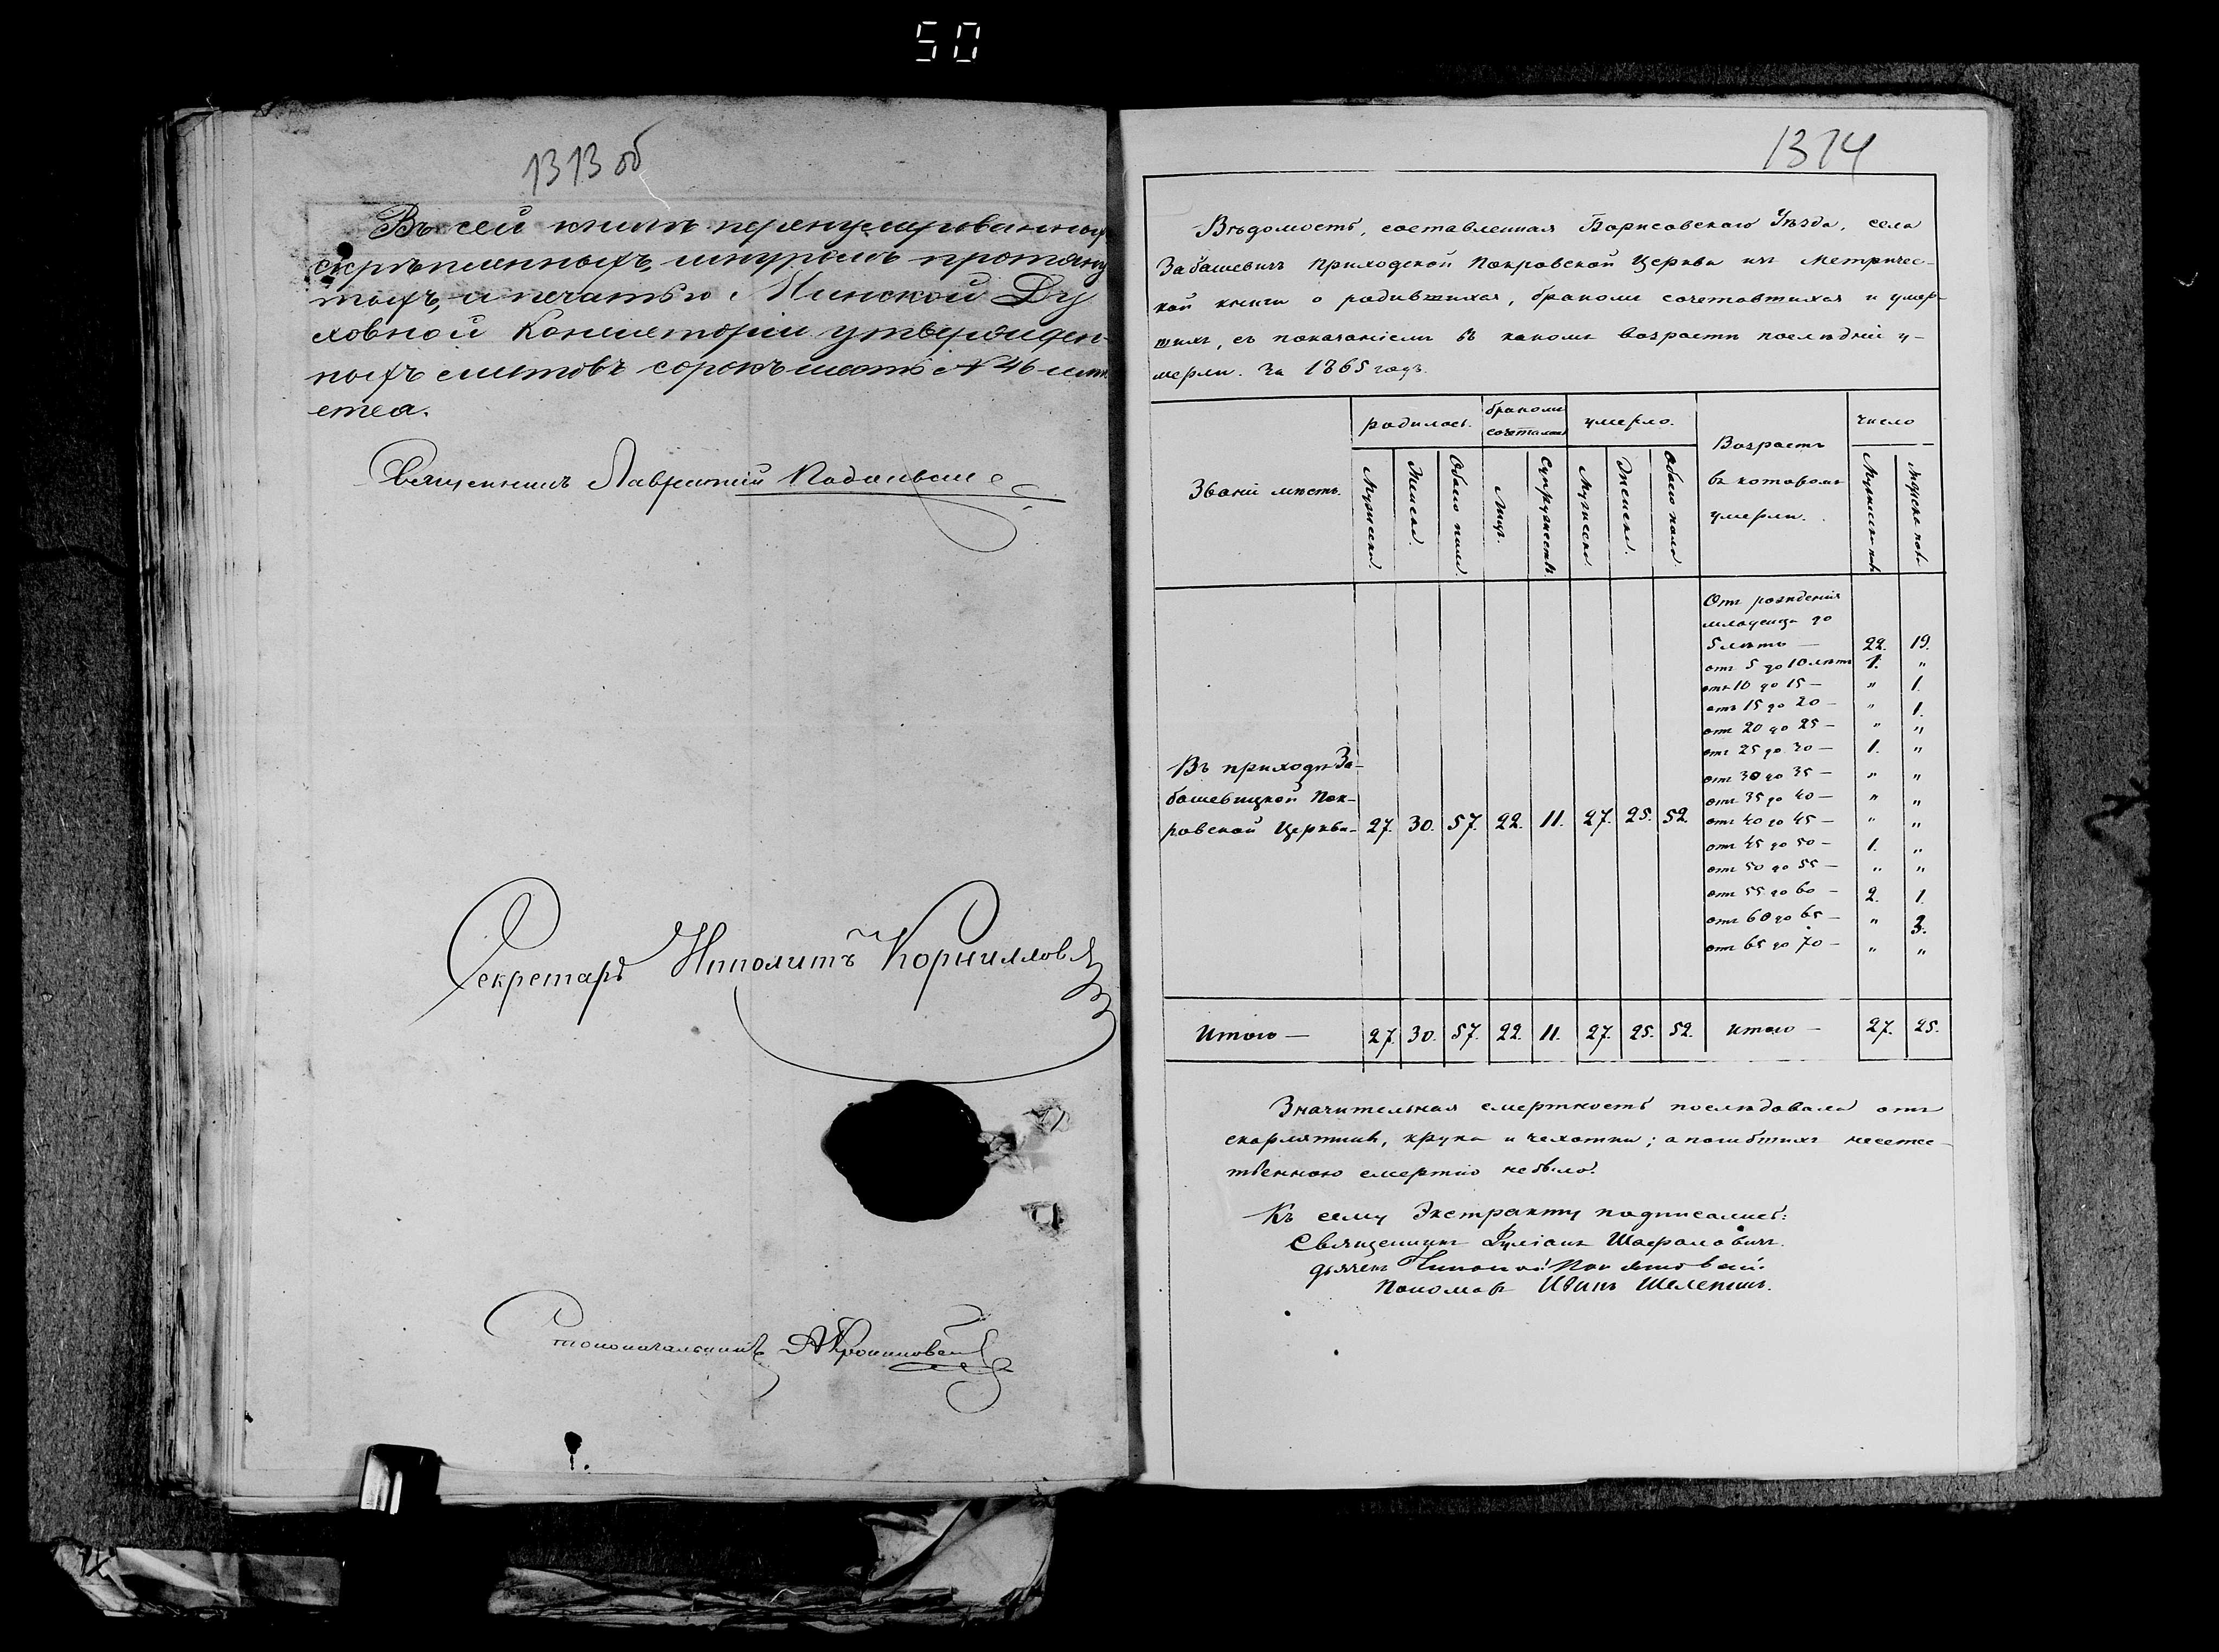 50
1313 об
Въ сей книгѣ перенумерованныхъ
скрѣпленныхъ, шнуромъ протяну
тыхъ, и печатью Минской Ду
ховной Консисторіи утвержден-
ныхъ листовъ сорокъ шесть № 46 лист
ста.
Священникъ Лаврентій
Секретарь Ипполитъ Корниллов
Столоначальникъ
1314
Вѣдомость, составленная Борисовскаго Уѣзда, села
Забашевичъ приходской Покровской Церкви изъ Метричес-
кой книги о родившихся, бракомъ сочетавшихся и умер-
шихъ, съ показаніемъ въ какомъ возрастѣ послѣдніе у-
мерли. За 1865 годъ.
Званіе мѣстъ. родилось. бракомъ сочеталось умерло. Возрастъ въ которомъ умерли. число
Мужеска. Женска. Обоего пола. Лицъ. Супружествъ. Мужеска. Женска. Обоего пола. Мужеска пола Женска пола
Отъ рожденія
младенца до
5 лѣтъ — 22. 19.
отъ 5 до 10 лѣтъ 1. "
отъ 10 до 15 — " 1.
отъ 15 до 20 — " 1.
отъ 20 до 25 — " "
отъ 25 до 30 — 1. "
отъ 30 до 35 — " "
отъ 35 до 40 — " "
отъ 40 до 45 — " "
отъ 45 до 50 — 1. "
отъ 50 до 55 — " "
отъ 55 до 60 — 2. 1.
отъ 60 до 65 — " 3.
отъ 65 до 70 — " "
Въ приходѣ За-
башевицкой Пок-
ровской Церкви 27. 30. 57. 22. 11. 27. 25. 52.
Итого — 27. 30. 57. 22. 11. 27. 25. 52. Итого — 27. 25.
Значительная смертность послѣдовала отъ
скарлятины, крупа и чахотки; а погибшихъ неестес-
твенною смертію небыло.
Къ сему Экстракту подписались:
Священникъ Іуліанъ Шафаловичъ.
дьячекъ
Пономарь Иванъ Шелепинъ.